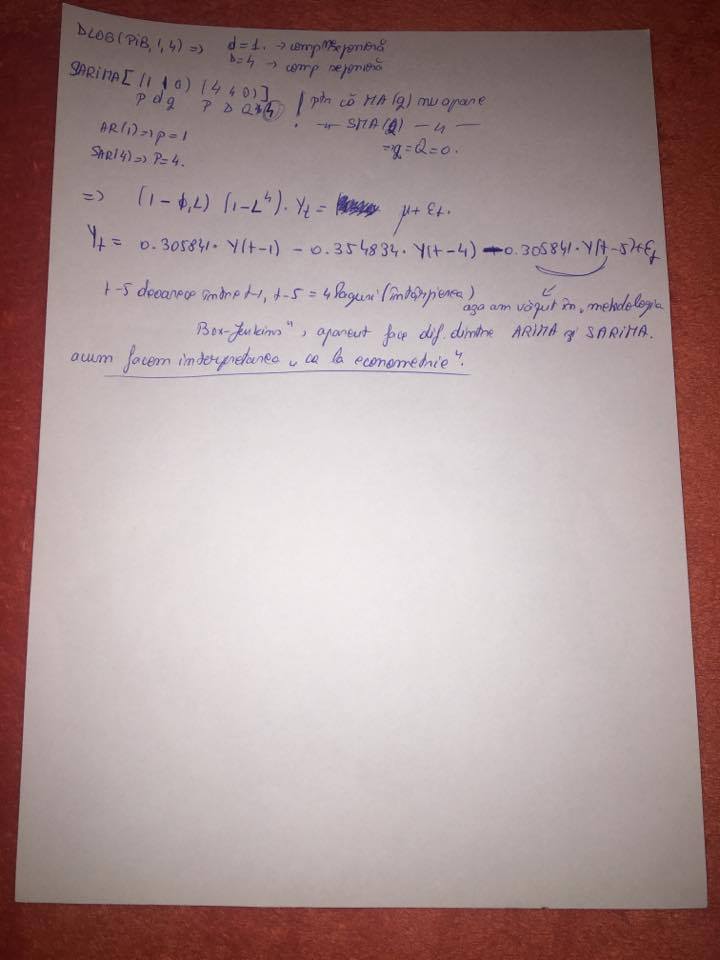 DLOG(PIB,1,4) => d=1. -> comp neseponieră
D=4 -> comp seponieră
SARIMA[(1 1 0) (4 4 0)]
p d q P D Q
! ptr că MA(q) nu apare
AR(1)=>p=1
—"— SMA(Q) —"—
SAR(4)=>P=4.
=>q=Q=0.
=> (1-ϕ₁L) (1-L⁴). Yₜ = μ+ εₜ.
Yₜ = 0.305841. Y(t-1) - 0.354834. Y(t-4) - 0.305841. Y(t-5)+εₜ
t-5 deoarece între t-1, t-5 = 4 laguri (întârzierea)
așa am văzut în „metodologia
Box-Jenkins", face dif. dintre ARIMA și SARIMA.
acum facem interpretarea „ca la econometrie".